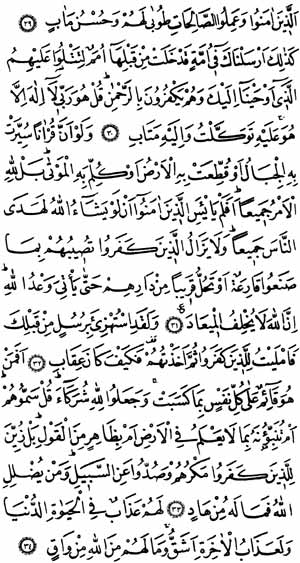 الَّذِينَ اٰمَنُوا وَعَمِلُوا الصَّالِحَاتِ طُوبٰى لَهُمْ وَحُسْنُ مَاٰبٍ ﴿٢٩﴾
كَذٰلِكَ اَرْسَلْنَاكَ فِى اُمَّةٍ قَدْ خَلَتْ مِنْ قَبْلِهَا اُمَمٌ لِتَتْلُوَا عَلَيْهِمُ
الَّذِى اَوْحَيْنَا اِلَيْكَ وَهُمْ يَكْفُرُونَ بِالرَّحْمٰنِ قُلْ هُوَ رَبِّى لَا اِلٰهَ اِلَّا
هُوَ عَلَيْهِ تَوَكَّلْتُ وَاِلَيْهِ مَتَابِ ﴿٣٠﴾ وَلَوْ اَنَّ قُرْاٰنًا سُيِّرَتْ
بِهِ الْجِبَالُ اَوْ قُطِّعَتْ بِهِ الْاَرْضُ اَوْ كُلِّمَ بِهِ الْمَوْتٰى بَلْ لِلّٰهِ
الْاَمْرُ جَمِيعًا اَفَلَمْ يَايْـَٔسِ الَّذِينَ اٰمَنُوا اَنْ لَوْ يَشَاءُ اللّٰهُ لَهَدَى
النَّاسَ جَمِيعًا وَلَا يَزَالُ الَّذِينَ كَفَرُوا تُصِيبُهُمْ بِمَا
صَنَعُوا قَارِعَةٌ اَوْ تَحُلُّ قَرِيبًا مِنْ دَارِهِمْ حَتّٰى يَأْتِىَ وَعْدُ اللّٰهِ
اِنَّ اللّٰهَ لَا يُخْلِفُ الْمِيعَادَ ﴿٣١﴾ وَلَقَدِ اسْتُهْزِئَ بِرُسُلٍ مِنْ قَبْلِكَ
فَاَمْلَيْتُ لِلَّذِينَ كَفَرُوا ثُمَّ اَخَذْتُهُمْ فَكَيْفَ كَانَ عِقَابِ ﴿٣٢﴾ اَفَمَنْ
هُوَ قَائِمٌ عَلٰى كُلِّ نَفْسٍ بِمَا كَسَبَتْ وَجَعَلُوا لِلّٰهِ شُرَكَاءَ قُلْ سَمُّوهُمْ
اَمْ تُنَبِّؤُنَهُ بِمَا لَا يَعْلَمُ فِى الْاَرْضِ اَمْ بِظَاهِرٍ مِنَ الْقَوْلِ بَلْ زُيِّنَ
لِلَّذِينَ كَفَرُوا مَكْرُهُمْ وَصُدُّوا عَنِ السَّبِيلِ وَمَنْ يُضْلِلِ
اللّٰهُ فَمَا لَهُ مِنْ هَادٍ ﴿٣٣﴾ لَهُمْ عَذَابٌ فِى الْحَيٰوةِ الدُّنْيَا
وَلَعَذَابُ الْاٰخِرَةِ اَشَقُّ وَمَا لَهُمْ مِنَ اللّٰهِ مِنْ وَاقٍ ﴿٣٤﴾